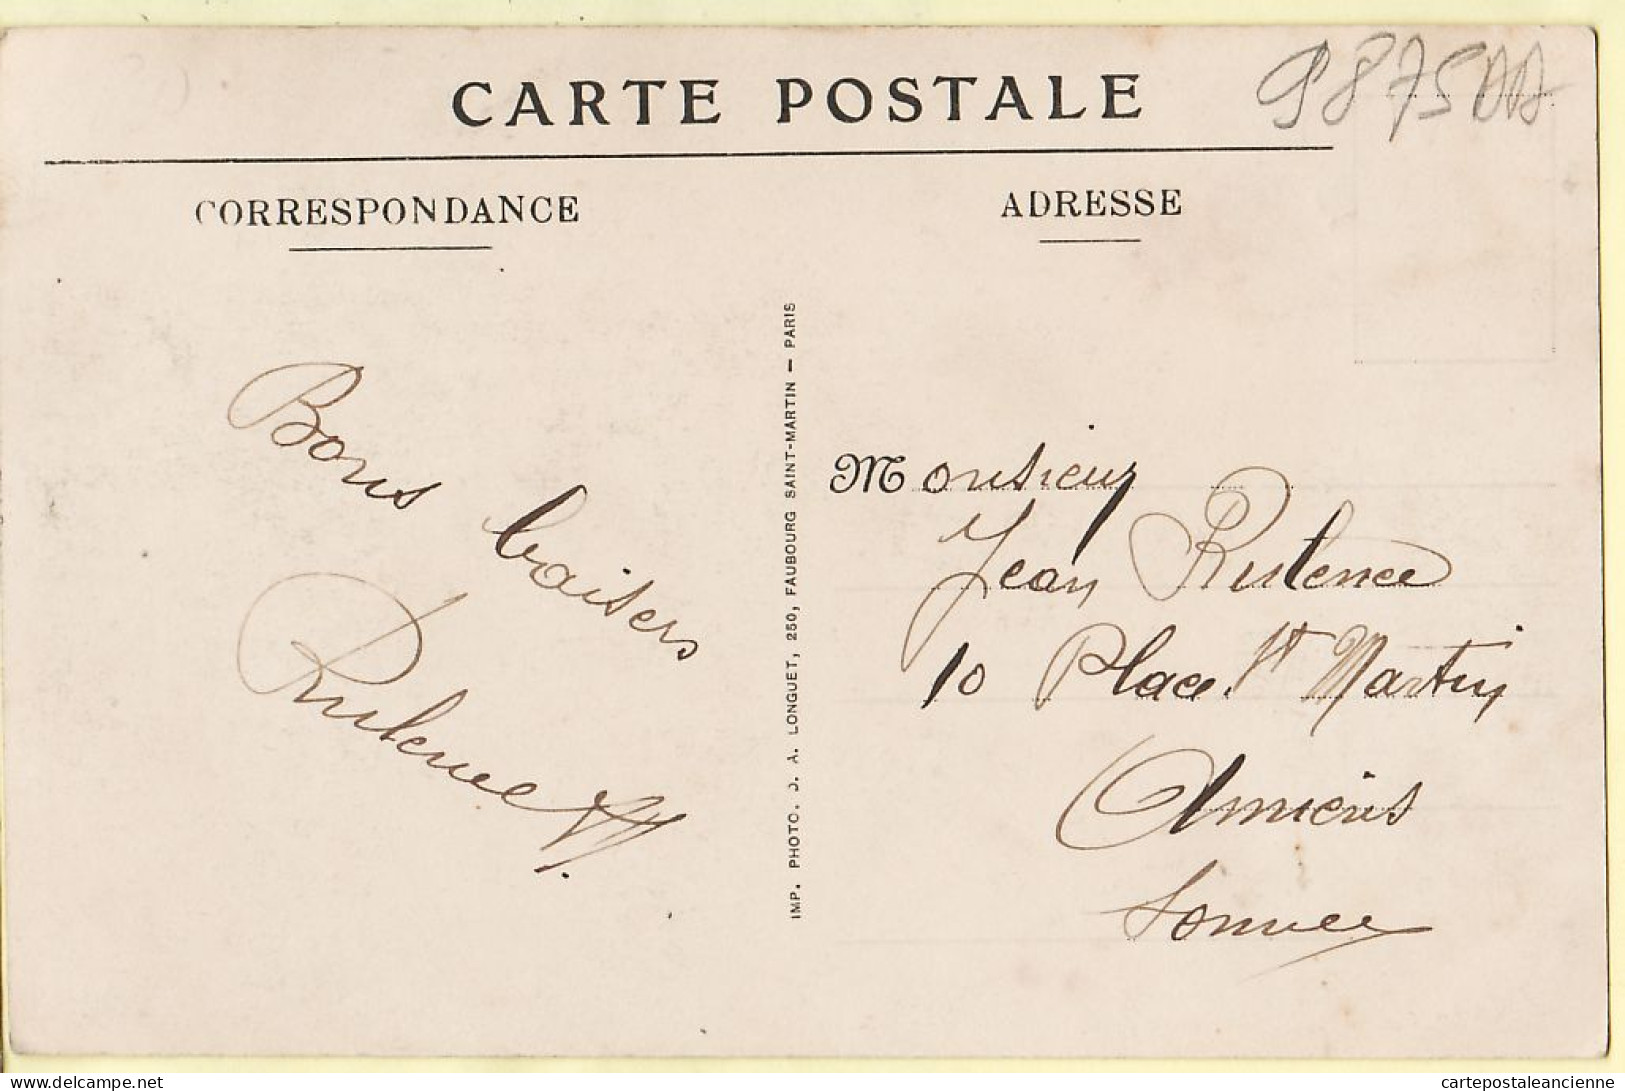 CARTE POSTALE
CORRESPONDANCE
ADRESSE
Bons baisers
Rulence
IMP. PHOTO. J. A. LONGUET, 250, FAUBOURG SAINT-MARTIN — PARIS
Monsieur
Jean Rulence
10 Place St Martin
Amiens
Somme
delcampe.net
cartepostaleancienne